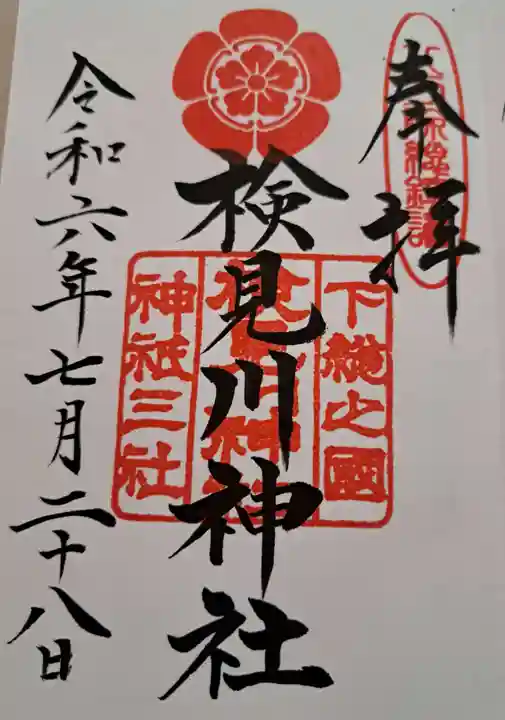 奉拝
下総之國
検見川神社
神祇三社
令和六年七月二十八日